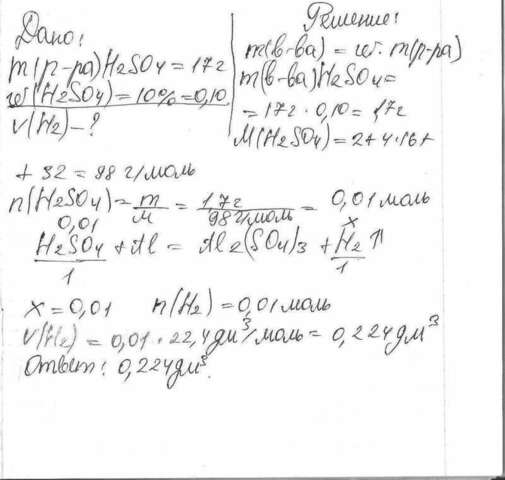 Дано:
m(р-ра)H2SO4 = 17г
w(H2SO4) = 10% = 0,10
V(H2) - ?
Решение:
m(в-ва) = w. m(р-ра)
m(в-ва)H2SO4 =
= 17г · 0,10 = 1,7г
M(H2SO4) = 2 + 4·16 +
+ 32 = 98 г/моль
n(H2SO4) = m/M = 1,7г/98г/моль = 0,01 моль
0,01 x
H2SO4 + Al = Al2(SO4)3 + H2↑
1 1
x = 0,01 n(H2) = 0,01 моль
V(H2) = 0,01 · 22,4 дм³/моль = 0,224 дм³
Ответ: 0,224 дм³.